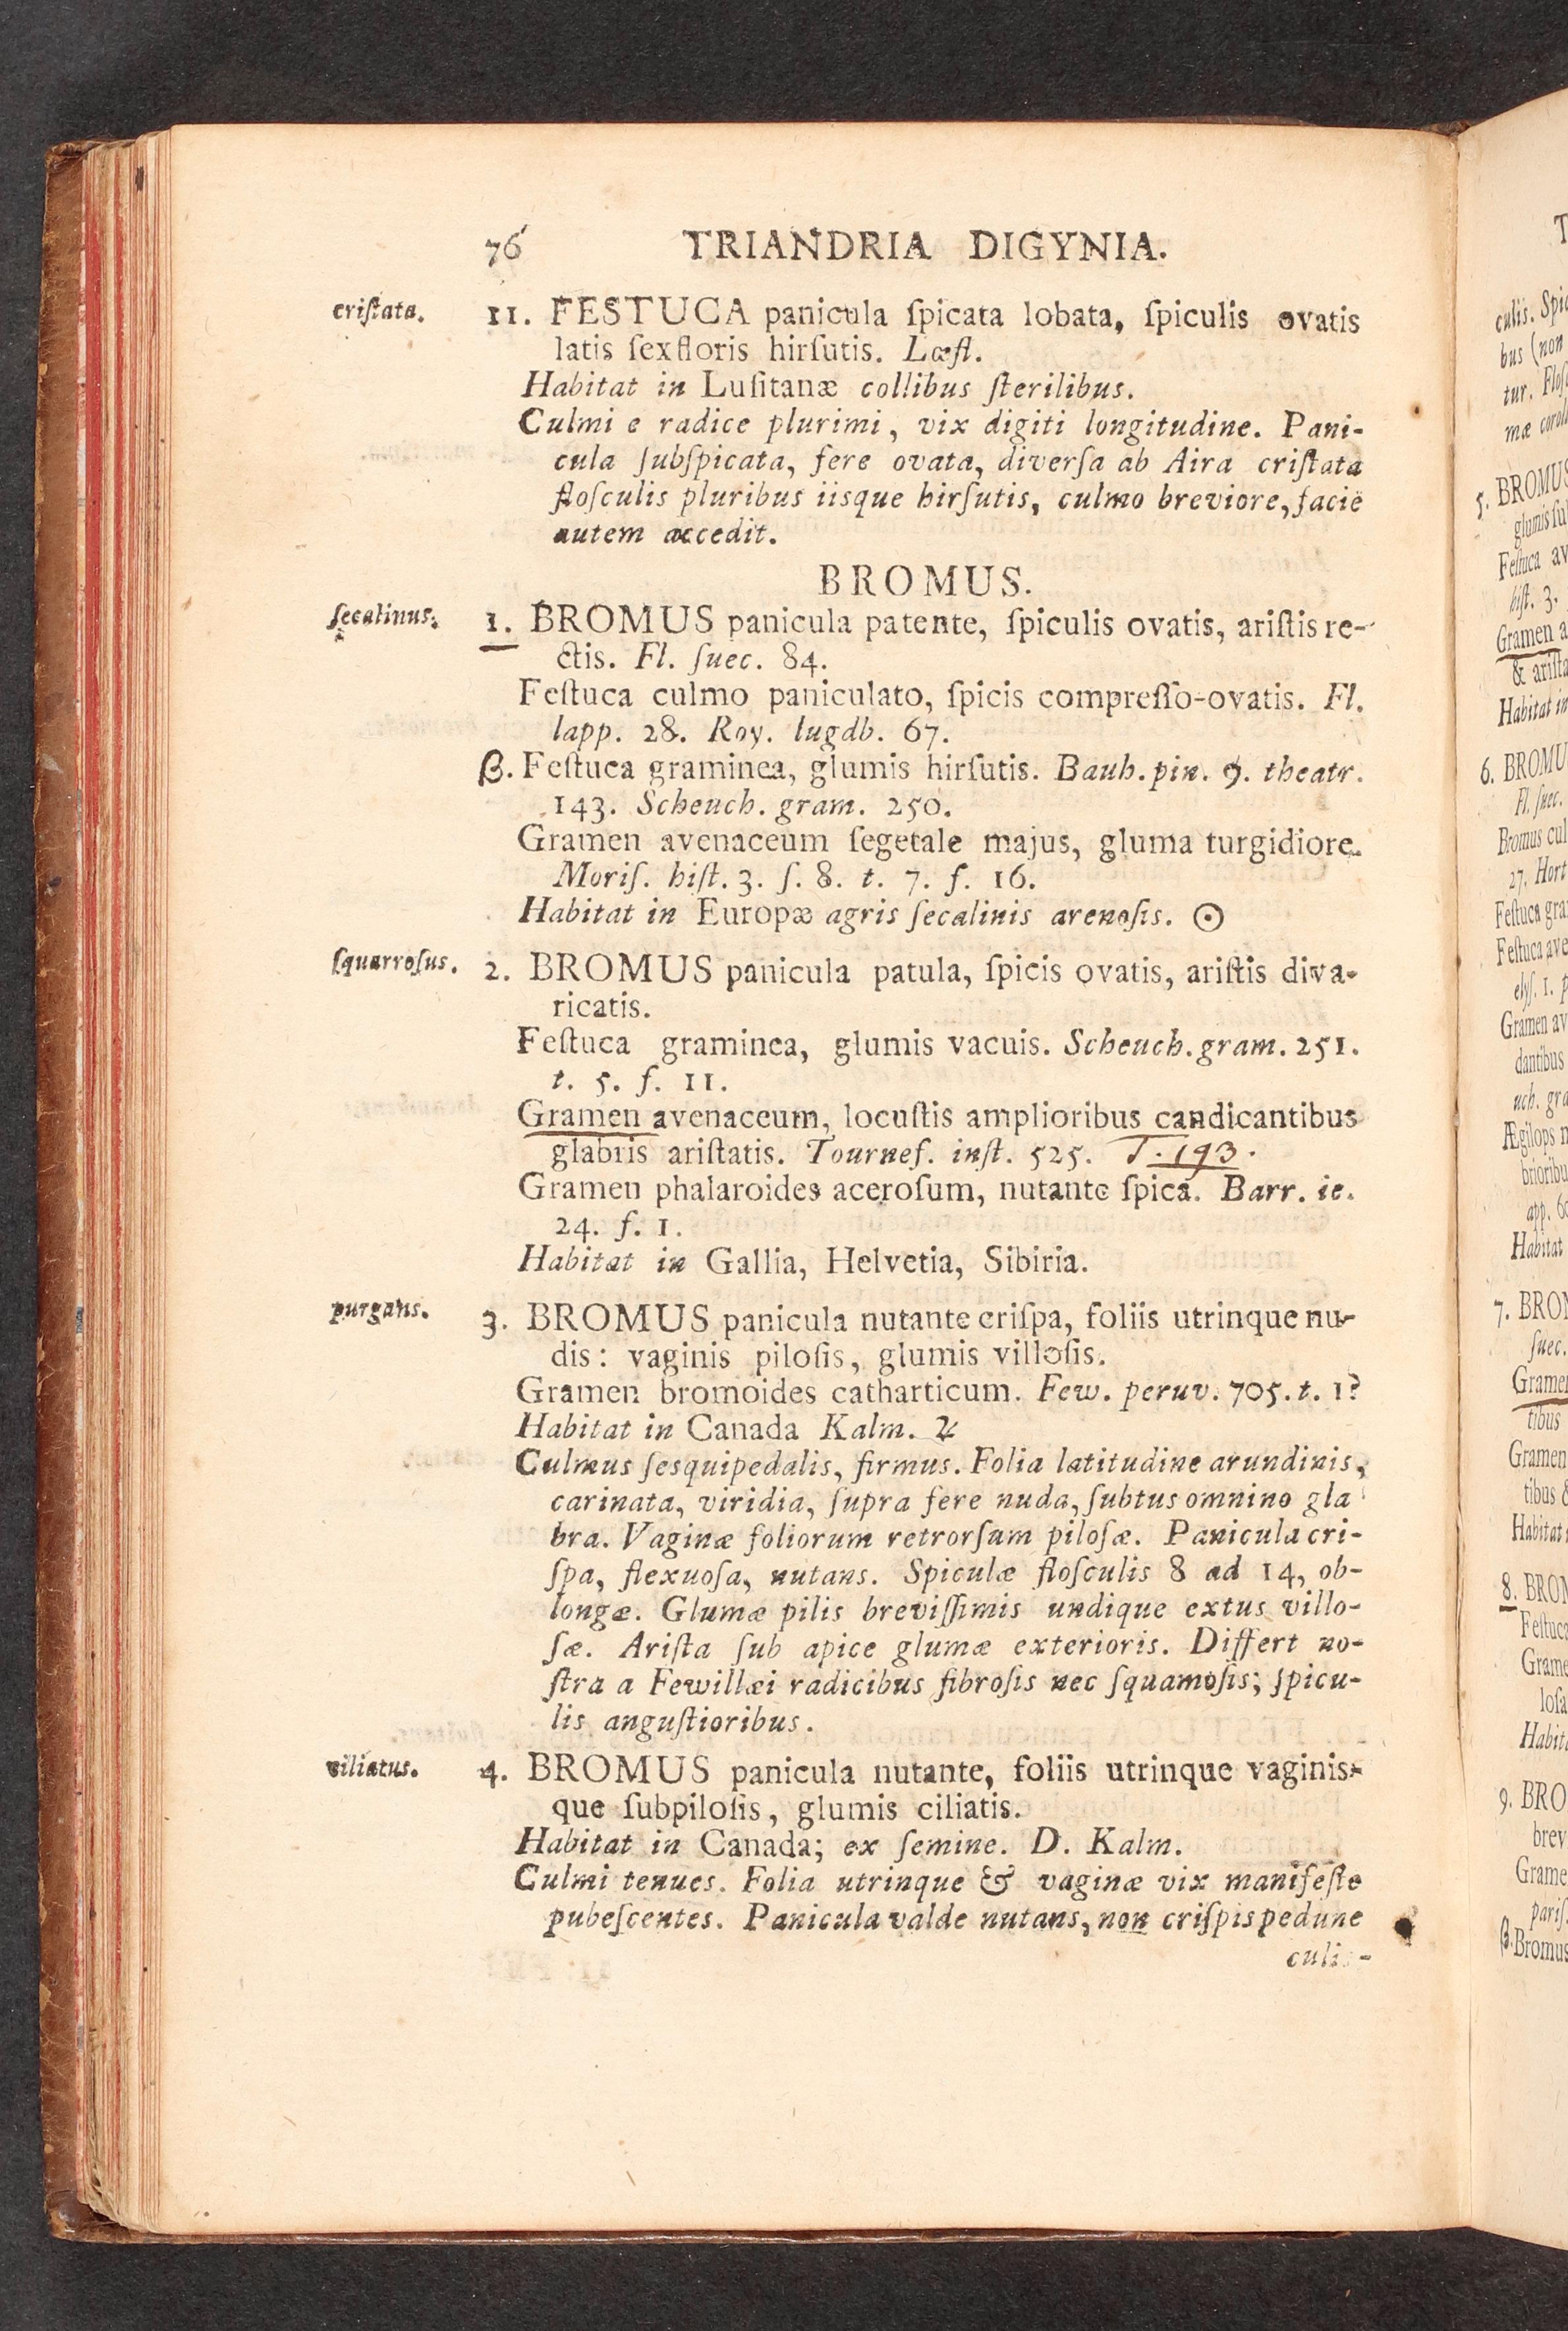 76 TRIANDRIA DIGYNIA.
criſtata. 11. FESTUCA panicula ſpicata lobata, ſpiculis ovatis
latis ſexfloris hirſutis. Lœfl.
Habitat in Luſitanæ collibus ſterilibus.
Culmi e radice plurimi, vix digiti longitudine. Pani-
cula ſubſpicata, fere ovata, diverſa ab Aira criſtata
floſculis pluribus iisque hirſutis, culmo breviore, facie
autem accedit.
BROMUS.
ſecalinus. 1. BROMUS panicula patente, ſpiculis ovatis, ariſtis re-
ctis. Fl. ſuec. 84.
Feſtuca culmo paniculato, ſpicis compreſſo-ovatis. Fl.
lapp. 28. Roy. lugdb. 67.
β. Feſtuca graminea, glumis hirſutis. Bauh. pin. 9. theatr.
143. Scheuch. gram. 250.
Gramen avenaceum ſegetale majus, gluma turgidiore.
Moriſ. hiſt. 3. ſ. 8. t. 7. f. 16.
Habitat in Europæ agris ſecalinis arenoſis. ☉
ſquarroſus. 2. BROMUS panicula patula, ſpicis ovatis, ariſtis diva-
ricatis.
Feſtuca graminea, glumis vacuis. Scheuch. gram. 251.
t. 5. f. 11.
Gramen avenaceum, locuſtis amplioribus candicantibus
glabris ariſtatis. Tournef. inſt. 525. T. 193.
Gramen phalaroides aceroſum, nutante ſpica. Barr. ic.
24. f. 1.
Habitat in Gallia, Helvetia, Sibiria.
purgans. 3. BROMUS panicula nutante criſpa, foliis utrinque nu-
dis: vaginis piloſis, glumis villoſis.
Gramen bromoides catharticum. Few. peruv. 705. t. 1?
Habitat in Canada Kalm. ♃
Culmus ſesquipedalis, firmus. Folia latitudine arundinis,
carinata, viridia, ſupra fere nuda, ſubtus omnino gla
bra. Vaginæ foliorum retrorſum piloſæ. Panicula cri-
ſpa, flexuoſa, nutans. Spiculæ floſculis 8 ad 14, ob-
longæ. Glumæ pilis breviſſimis undique extus villo-
ſæ. Ariſta ſub apice glumæ exterioris. Differt no-
ſtra a Fewillæi radicibus fibroſis nec ſquamoſis; ſpicu-
lis anguſtioribus.
ciliatus. 4. BROMUS panicula nutante, foliis utrinque vaginis-
que ſubpiloſis, glumis ciliatis.
Habitat in Canada; ex ſemine. D. Kalm.
Culmi tenues. Folia utrinque & vaginæ vix manifeſte
pubeſcentes. Panicula valde nutans, non criſpis pedunc
culis-
culis. Spic
bus (non
tur. Floſ
mæ coroll
5. BROMUS
glumis ſu
Feſtuca av
hiſt. 3.
Gramen a
& ariſta
Habitat in
6. BROMU
Fl. ſuec.
Bromus cul
27. Hort
Feſtuca gra
Feſtuca ave
elyſ. 1. p
Gramen av
dantibus
uch. gra
Ægilops n
brioribu
app. 60
Habitat
7. BROM
ſuec.
Gramen
tibus
Gramen
tibus &
Habitat
8. BROM
Feſtuca
Grame
loſa
Habita
9. BRO
brev
Grame
pariſ.
β. Bromus